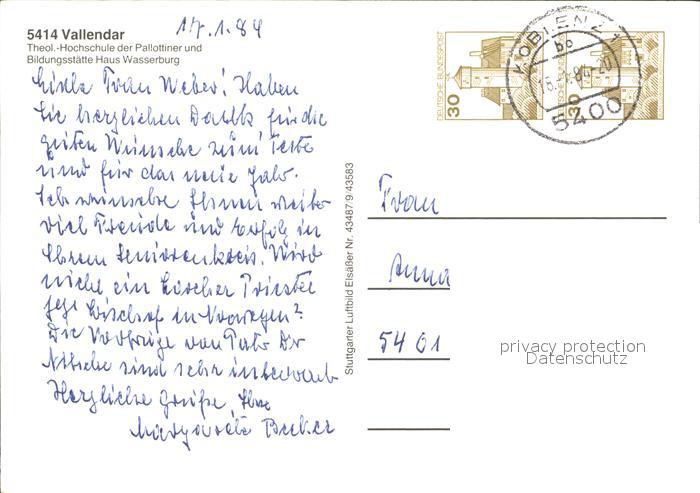 17.1.84
5414 Vallendar
Theol.-Hochschule der Pallottiner und
Bildungsstätte Haus Wasserburg
Liebe Frau Weber! Haben
Sie herzlichen Dank für die
guten Wünsche zum Feste
und für das neue Jahr.
Ich wünsche Ihnen weiter
viel Freude und Erfolg in
Ihrem Seniorenkreis. Wird
nicht ein Priester
jetzt Bischof in Norwegen?
Die Vorträge von Pater Dr
sind sehr
Herzliche Grüße, Ihre
Margarete Becker
Stuttgarter Luftbild Elsäßer Nr. 43487 9/43583
DEUTSCHE BUNDESPOST
30
DEUTSCHE BUNDESPOST
30
KOBLENZ 1
bb
5400
Frau
Anna
5401
privacy protection
Datenschutz